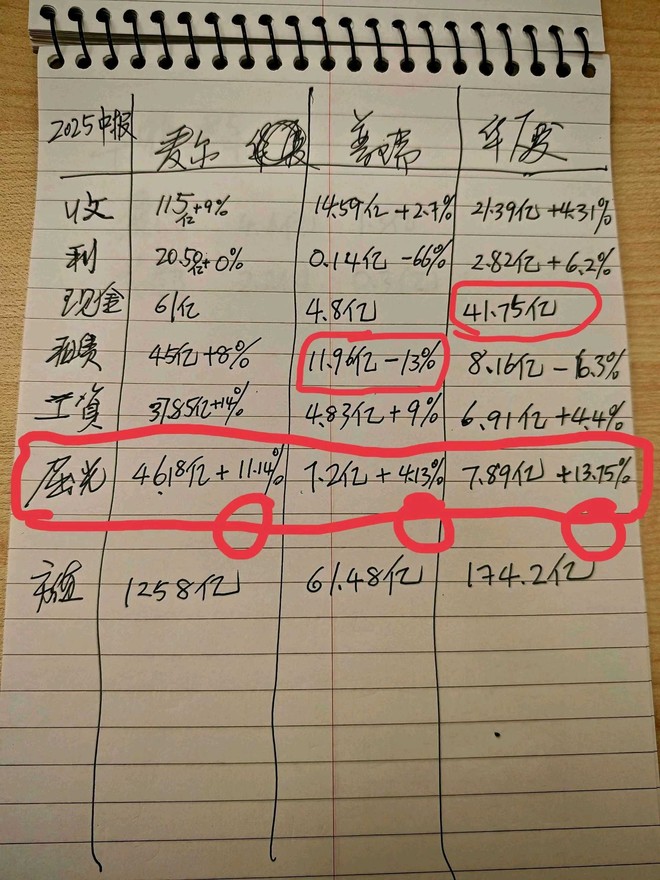 2025中报 麦尔 普瑞 华厦
收 115亿+9% 14.59亿+2.7% 21.39亿+4.31%
利 20.5亿+0% 0.14亿-66% 2.82亿+6.2%
现金 61亿 4.8亿 41.75亿
租赁 45亿+8% 11.96亿-13% 8.16亿-16.3%
工资 37.85亿+14% 4.83亿+9% 6.91亿+4.4%
屈光 46.18亿+11.14% 7.2亿+4.13% 7.89亿+13.75%
市值 1258亿 61.48亿 174.2亿